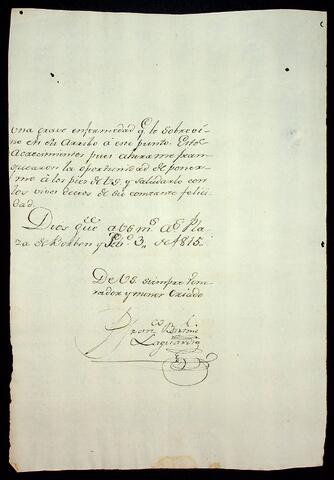 una grave enfermedad q.e le sobrevi-
no en su arribo a ese punto. Estos
Acaecimientos pues ahora me fran-
quearon la oportunidad de poner-
me à los pies de V.S. y saludarlo con
los vivos deseos de su constante felici-
dad.
Dios gũe a V.S. m.s a.s Pla-
za de Borbon y Feb.o 3,, de 1815.
De V.S. siempre hon-
rador y menor Criado
Fran.co
Laguardia